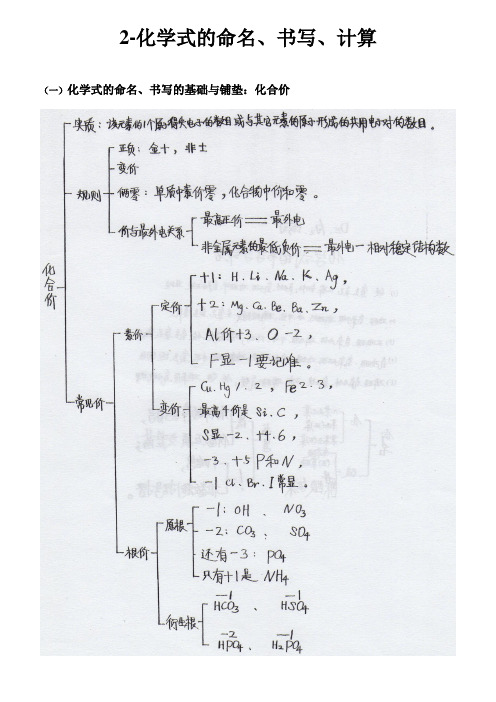 2-化学式的命名、书写、计算
（一）化学式的命名、书写的基础与铺垫：化合价
化合价
实质：该元素的1个原子得失电子的数目或与其它元素的原子形成的共用电子对的数目。
规则
正负：金+，非±
变价
俩零：单质中素价零，化合物中价和零。
价与最外电关系
最高正价══最外电
非金属元素的最低负价══最外电－相对稳定结构数
常见价
素价
定价
+1：H、Li、Na、K、Ag，
+2：Mg、Ca、Be、Ba、Zn，
Al价+3、O -2，
F显-1要记准。
变价
Cu、Hg 1、2，Fe 2、3，
最高4价是Si、C，
S显-2、+4、6，
-3、+5 P和N，
-1 Cl、Br、I常显。
根价
原根
-1：OH、NO3
-2：CO3、SO4
还有-3：PO4
只有+1是NH4
衍生根
-1 -1
HCO3、HSO4
-2 -1
HPO4、H2PO4